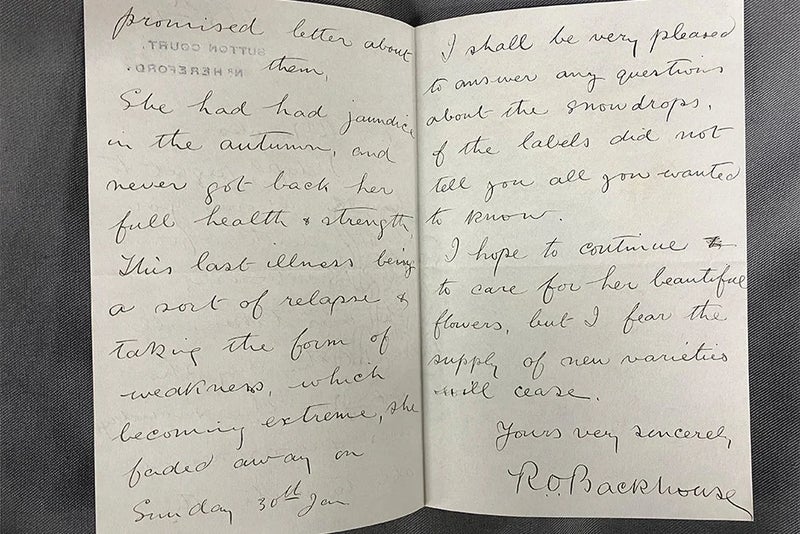 promised letter about
SUTTON COURT,
Nr HEREFORD.
them,
She had had jaundice
in the autumn, and
never got back her
full health & strength,
This last illness being
a sort of relapse &
taking the form of
weakness, which
becoming extreme, she
faded away on
Sunday 30th Jan
I shall be very pleased
to answer any questions
about the snowdrops,
if the labels did not
tell you all you wanted
to know.
I hope to continue to
to care for her beautiful
flowers, but I fear the
supply of new varieties
will cease.
Yours very sincerely,
R.O. Backhouse